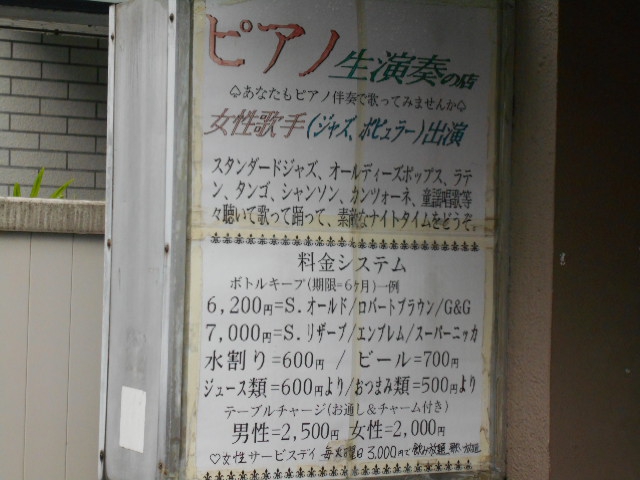 ピアノ生演奏の店
♤あなたもピアノ伴奏で歌ってみませんか♤
女性歌手(ジャズ、ポピュラー)出演
スタンダードジャズ、オールディーズポップス、ラテ
ン、タンゴ、シャンソン、カンツォーネ、童謡唱歌等
々聴いて歌って踊って、素敵なナイトタイムをどうぞ。
料金システム
ボトルキープ(期限=6ヶ月)一例
6,200円=S.オールド/ロバートブラウン/G&G
7,000円=S.リザーブ/エンブレム/スーパーニッカ
水割り=600円 / ビール=700円
ジュース類=600円より/おつまみ類=500円より
テーブルチャージ(お通し&チャーム付き)
男性=2,500円 女性=2,000円
♡女性サービスデイ 毎火曜日 3,000円で飲み放題、歌い放題